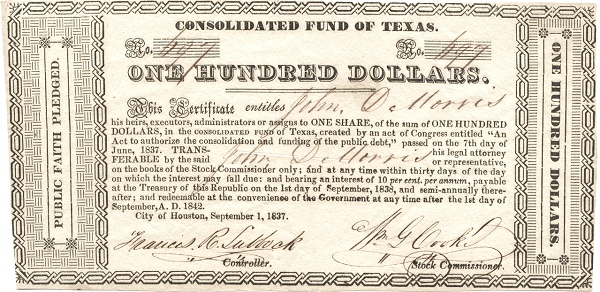 CONSOLIDATED FUND OF TEXAS.
No. 697 No. 697
ONE HUNDRED DOLLARS.
This Certificate entitles John D Morris
his heirs, executors, administrators or assigns to ONE SHARE, of the sum of ONE HUNDRED
DOLLARS, in the CONSOLIDATED FUND OF Texas, created by an act of Congress entitled "An
Act to authorize the consolidation and funding of the public debt," passed on the 7th day of
June, 1837. TRANS- his legal attorney
FERABLE by the said John D Morris or representative,
on the books of the Stock Commissioner only; and at any time within thirty days of the day
on which the interest may fall due: and bearing an interest of 10 per cent. per annum, payable
at the Treasury of this Republic on the 1st day of September, 1838, and semi-annually there-
after; and redeemable at the convenience of the Government at any time after the 1st day of
September, A. D. 1842.
City of Houston, September 1, 1837.
Francis R. Lubbock Wm G Cooke
Controller. Stock Commissioner.
PUBLIC FAITH PLEDGED.
ONE HUNDRED DOLLARS.